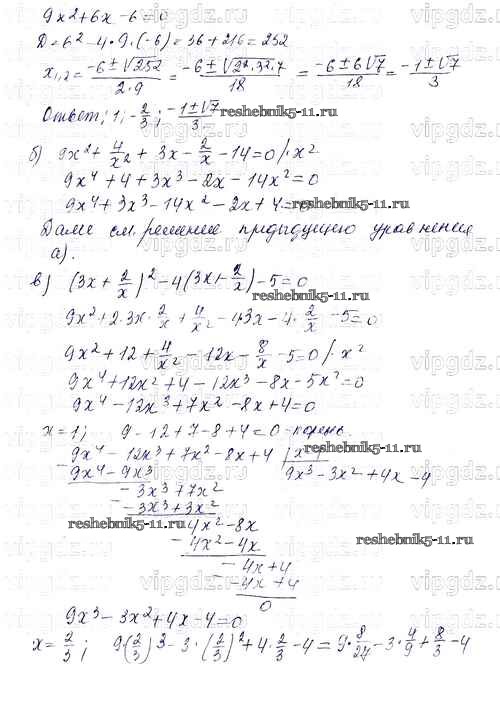 9x²+6x-6=0
D=6²-4·9·(-6)=36+216=252
x₁,₂=(-6±√252)/(2·9)=(-6±√(2²·3²·7))/18=(-6±6√7)/18=(-1±√7)/3
Ответ: 1; -2/3; (-1±√7)/3
reshebnik5-11.ru
б) 9x²+4/x²+3x-2/x-14=0/·x²
9x⁴+4+3x³-2x-14x²=0
9x⁴+3x³-14x²-2x+4=0
reshebnik5-11.ru
Далее см. решение предыдущего уравнения
а).
в) (3x+2/x)²-4(3x+2/x)-5=0
reshebnik5-11.ru
9x²+2·3x·2/x+4/x²-4·3x-4·2/x-5=0
9x²+12+4/x²-12x-8/x-5=0/·x²
9x⁴+12x²+4-12x³-8x-5x²=0
9x⁴-12x³+7x²-8x+4=0
x=1; 9-12+7-8+4=0-корень
reshebnik5-11.ru
-9x⁴-12x³+7x²-8x+4 |x-1
9x⁴-9x³ 9x³-3x²+4x-4
-3x³+7x²
-3x³+3x²
reshebnik5-11.ru 4x²-8x reshebnik5-11.ru
4x²-4x
-4x+4
-4x+4
0
9x³-3x²+4x-4=0
x=2/3; 9(2/3)³-3·(2/3)²+4·2/3-4=9·8/27-3·4/9+8/3-4